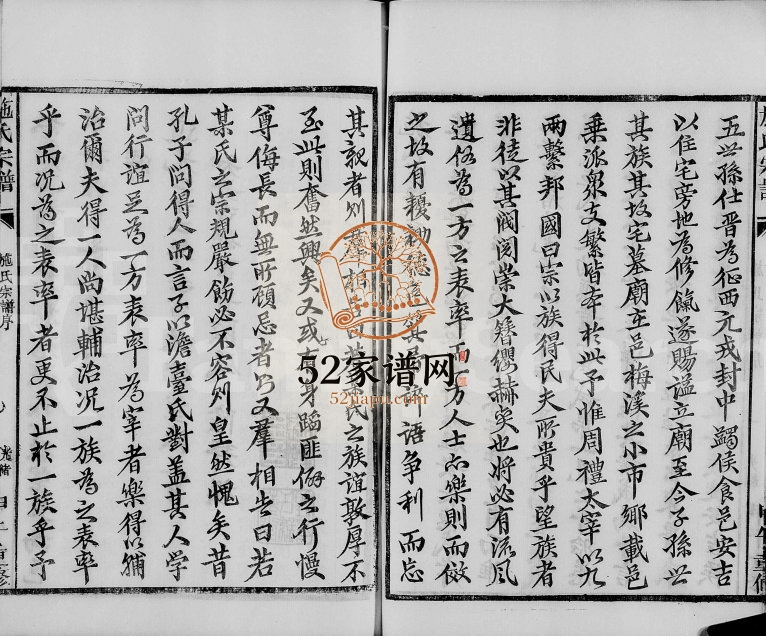 五世孫仕晋為征西元戎封中蠲侯食邑安吉
以住宅旁地為修餼遂賜謚立廟至今子孫世
其族其故宅墓廟在邑梅溪之小市鄉載邑
乘派衆支繁皆本於此予惟周禮太宰以九
兩繫邦國曰宗以族得民夫所貴乎望族者
非徒以其閥閱崇大簪纓赫奕也將必有流風
遺俗為一方之表率而一方人士亦樂則而傚
之故有耰鋤德 語爭利而忘
其親者則羣相 氏之族誼敦厚不
至此則奮然興矣又或 蹈匪僻之行慢
尊侮長而無所顧忌者乃又羣相告曰若
某氏之宗規嚴飭必不容則皇然愧矣昔
孔子問得人而言子以澹臺氏對盖其人學
問行誼足為一方表率為宰者樂得以輔
治爾夫得一人尚堪輔治况一族為之表率
乎而况為之表率者更不止於一族乎予
施氏宗譜
施氏宗譜序
光緒
52家谱网
52jiapu.com